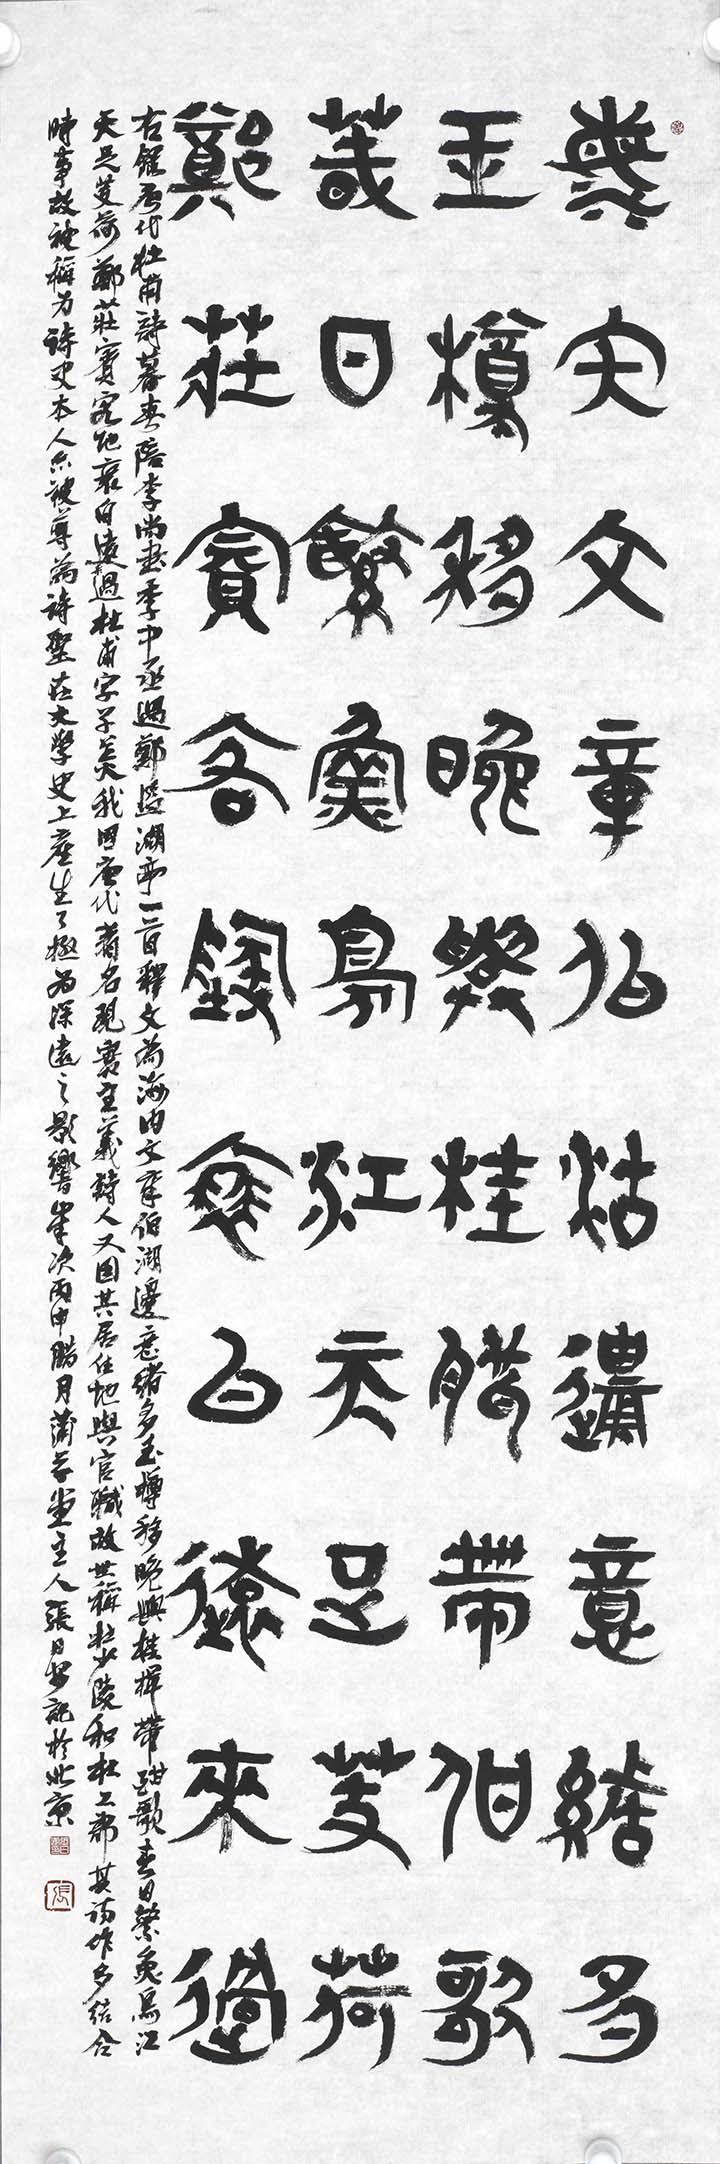 海内文章伯湖邊意緒多
玉樽移晚興桂楫帶酣歌
春日繁魚鳥江天足芰荷
鄭莊賓客地衰白遠來過
右錄唐代杜甫詩暮春陪李尚書李中丞過鄭監湖亭一首釋文為海内文章伯湖邊意緒多玉樽移晚興桂楫帶酣歌春日繁魚鳥江
天足芰荷鄭莊賓客地衰白遠來過杜甫字子美我国唐代著名現實主義詩人又因其居住地與官職故世稱杜少陵和杜工部其詩作多結合
時事故被稱为詩史本人亦被尊為詩聖在文學史上產生了極为深遠之影響歲次丙申腊月蒲草堂主人張日安記於北京
張